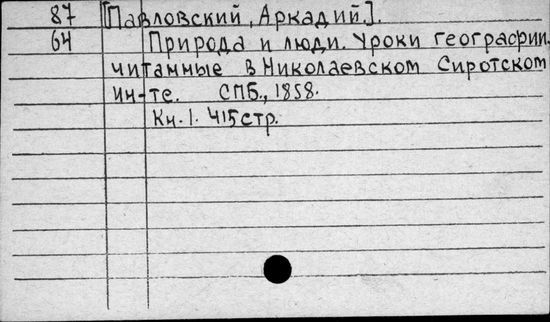 87 [Павловский, Аркадий.].
64 Природа и люди. Уроки географии.
читанные в Николаевском Сиротском
ин-те. СПБ., 1858.
Кн. 1. 415 стр.